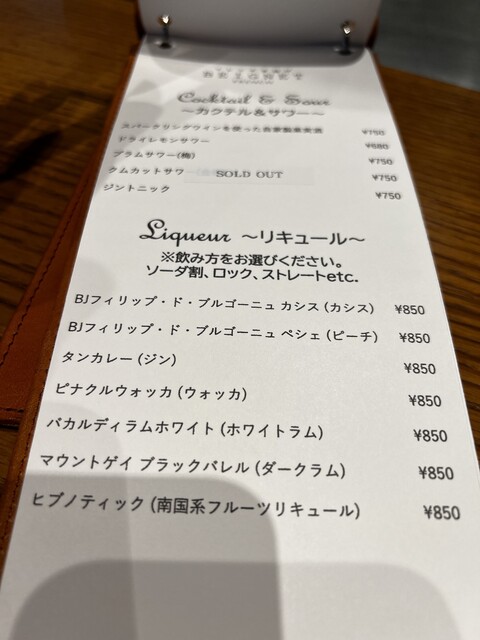 Cocktail & Sour
～カクテル＆サワー～
スパークリングワインを使った自家製果実酒 ¥750
ドライレモンサワー ¥680
プラムサワー(梅) ¥750
クムカットサワー SOLD OUT ¥750
ジントニック ¥750
Liqueur ～リキュール～
※飲み方をお選びください。
ソーダ割、ロック、ストレートetc.
BJフィリップ・ド・ブルゴーニュ カシス (カシス) ¥850
BJフィリップ・ド・ブルゴーニュ ペシェ (ピーチ) ¥850
タンカレー (ジン) ¥850
ピナクルウォッカ (ウォッカ) ¥850
バカルディラムホワイト (ホワイトラム) ¥850
マウントゲイ ブラックバレル (ダークラム) ¥850
ヒプノティック (南国系フルーツリキュール) ¥850